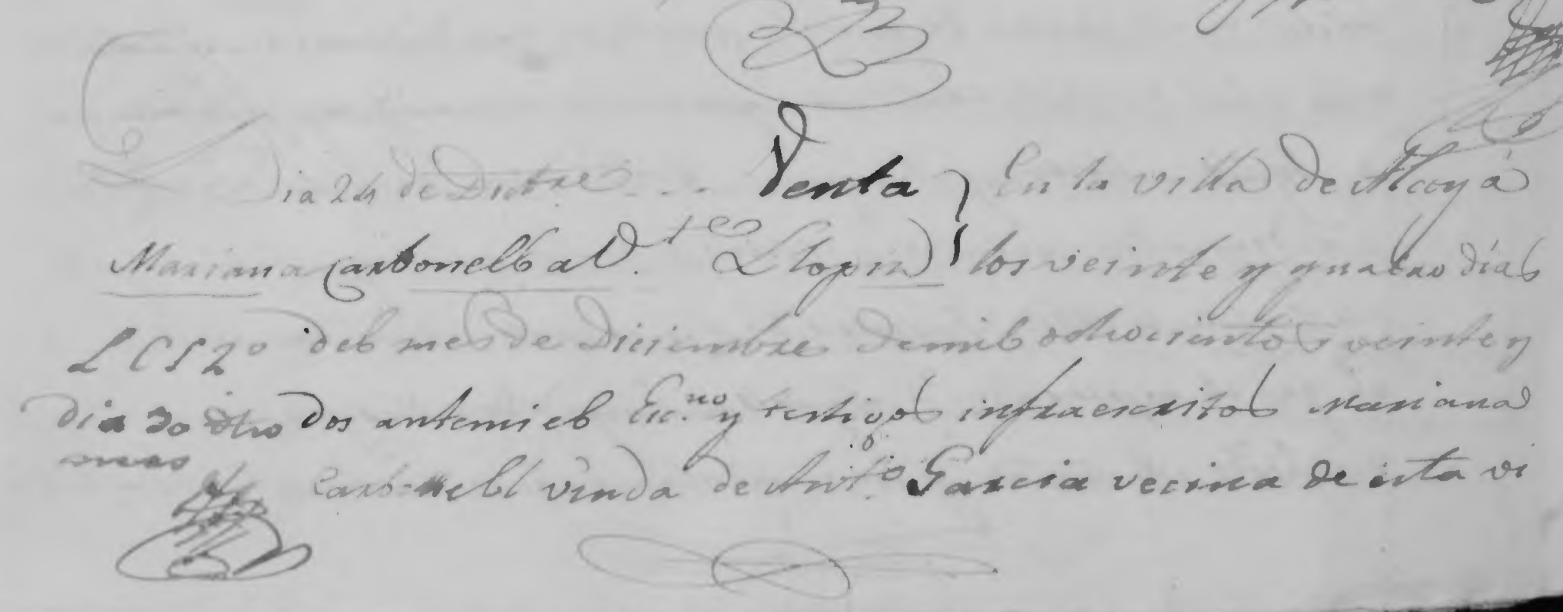 Dia 24 de Dicbre - - - Venta } En la villa de Alcoy á
Mariana Carbonell al D. Llopis los veinte y quatro días
L C S 2º del mes de Diciembre de mil ochocientos veinte y
dia 30 dho dos antemi el Esc.no y testigos infraescritos Mariana
mes Carbonell viuda de Ant.o Garcia vecina de esta vi